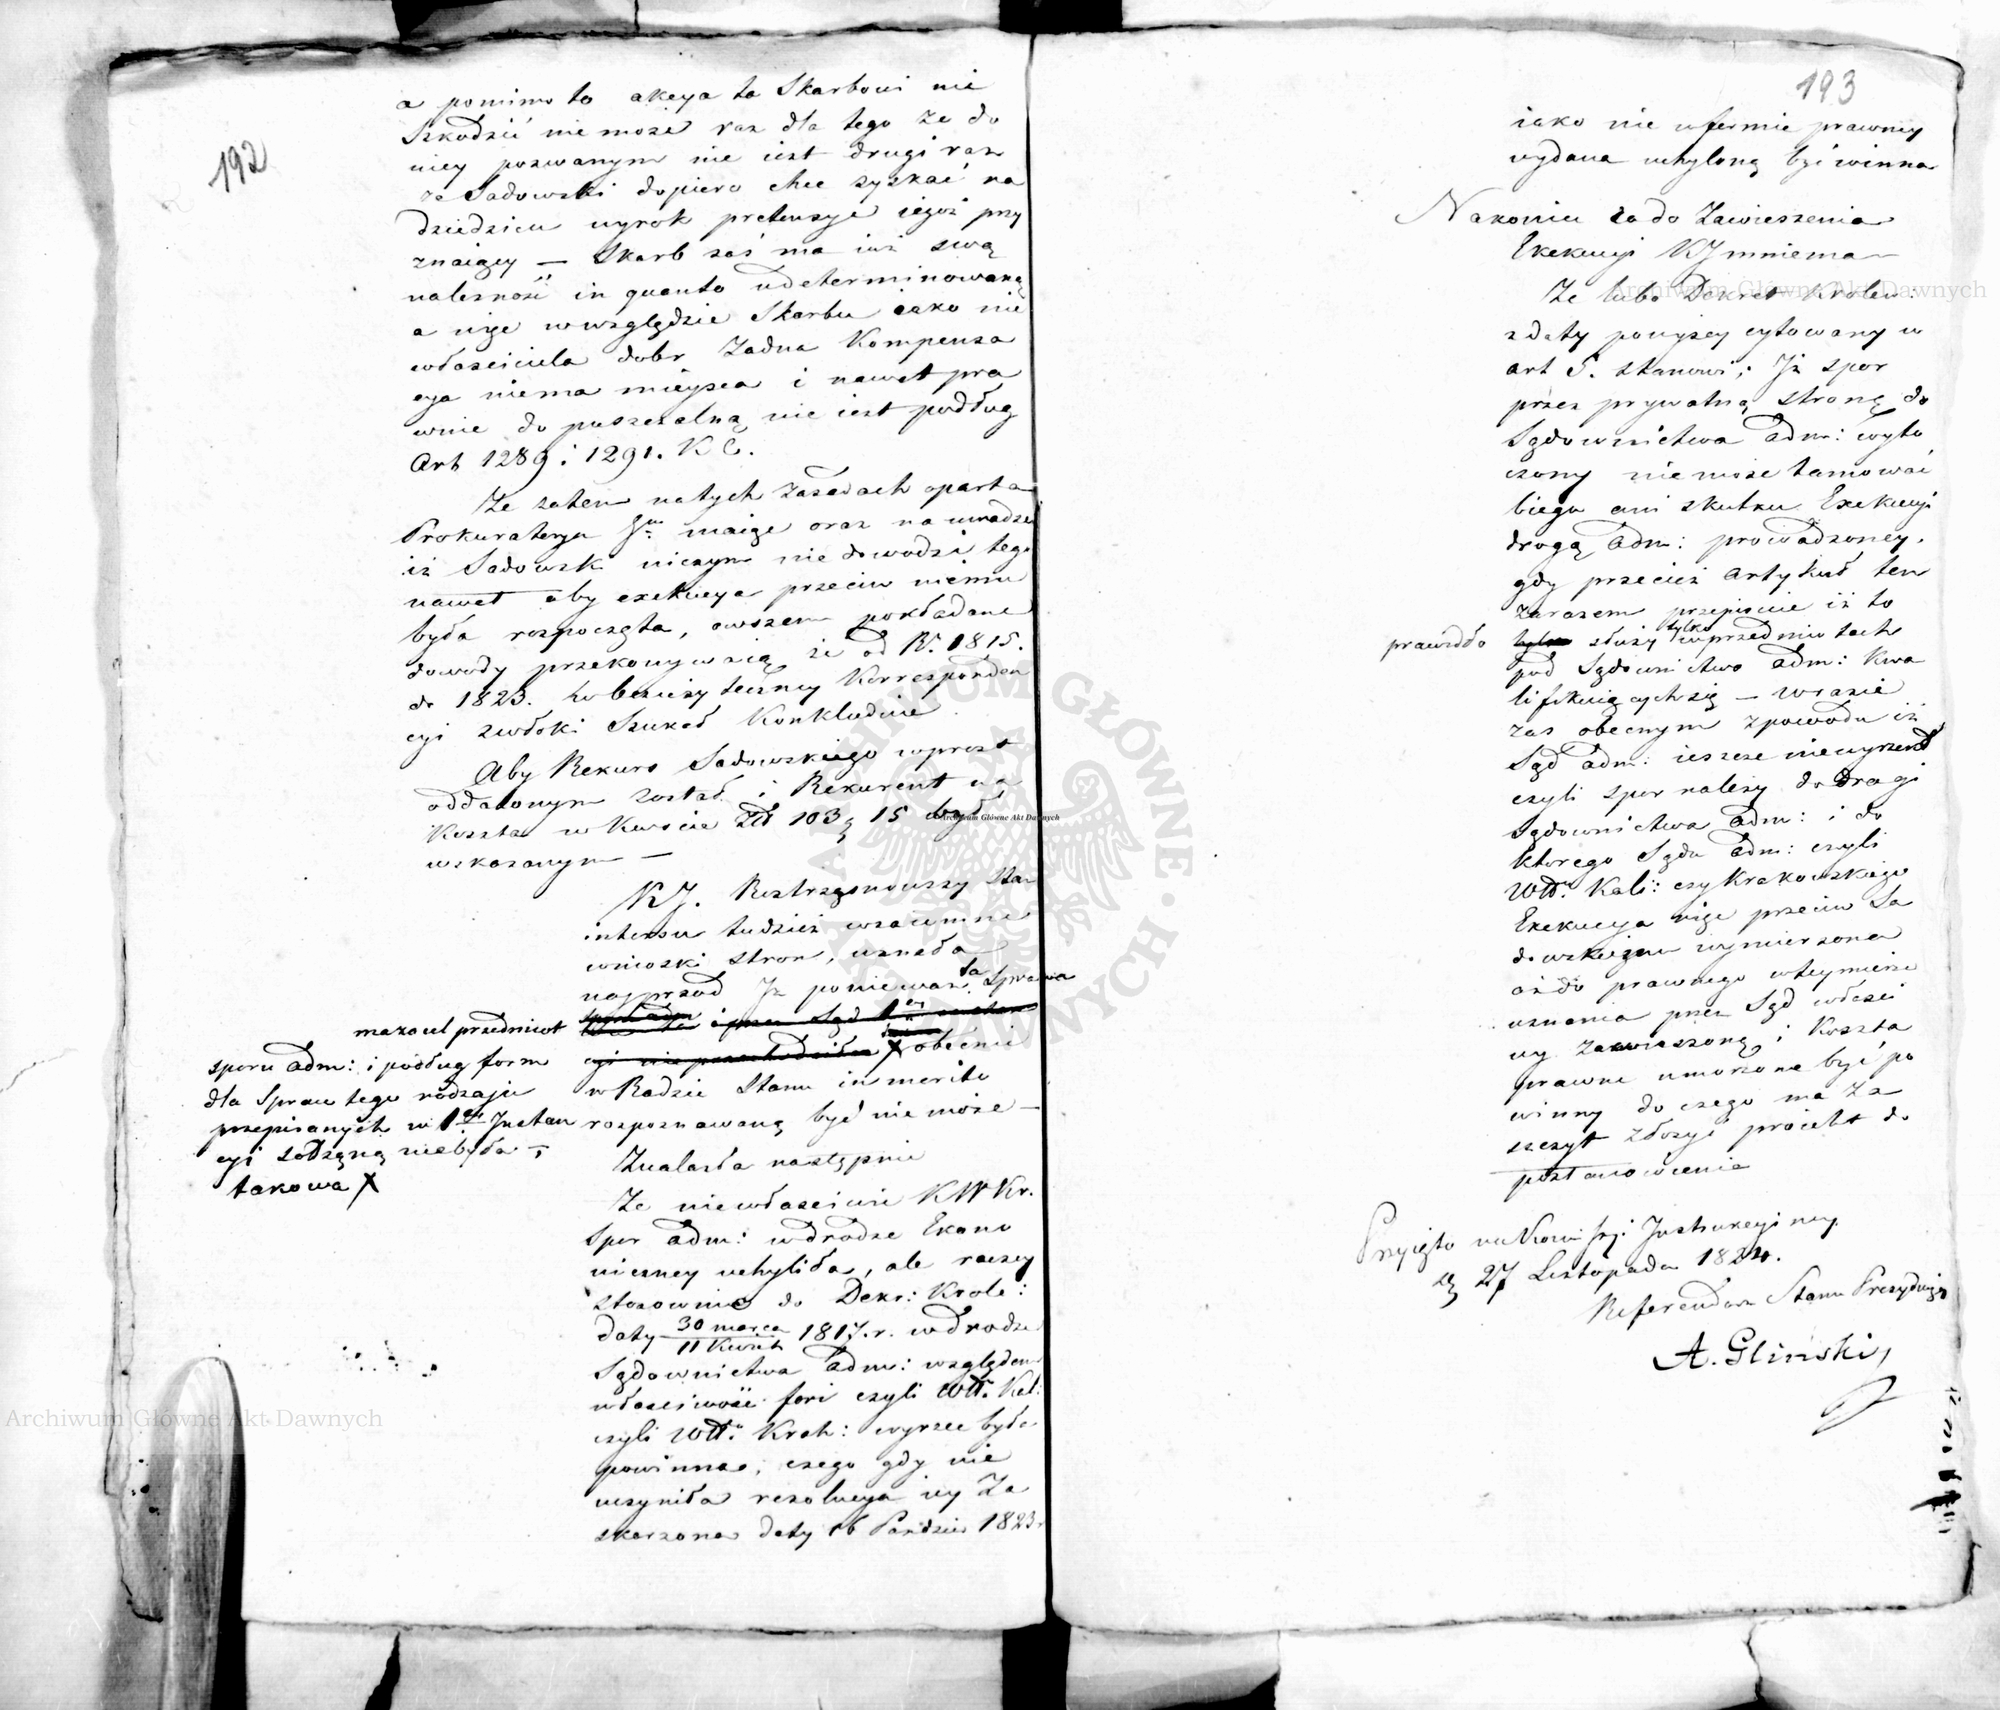 192
a pomimo to akcya ta Skarbowi nie
szkodzić nie może raz dla tego że do
niey pozwanym nie iest drugi raz
że Sadowski dopiero chce zyskać na
dziedzicu wyrok pretensye iegoż przy
znaiący — Skarb zaś ma iuż swą
należność in quanto udeterminowaną
a więc wwzględzie Skarbu iako nie
właściciela dobr żadna Kompensa
cya niema mieysca i nawet pra
wnie do puszczalną nie iest podług
Art 1289 i 1291. K C.
Że zatem natych zasadach oparta
Prokuraterya maiąc oraz na uwadze
iż Sadowski niczym nie dowodzi tego
nawet aby exekucya przeciw niemu
była rozpoczęta, owszem pokładane
dowody przekonywaią że od R. 1815.
do 1823. Korresponden
cyi zwłoki szukał Konkluduie
Aby Rekurs Sadowskiego wprost
oddalonym został i Rekurent na
koszta w kwocie Zł 103 g 15 był
wskazanym —
KJ. Roztrząsnąwszy stan
interesu tudzież wzaiemne
wnioski stron, uznała
naprzod Iż ponieważ ta sprawa
maiącą przedmiot
sporu adm: i podług form
dla Spraw tego rodzaju
przepisanych w 1ey Instan
cyi sądzoną niebyła —
takowa X
X obecnie
w Radzie Stanu in merito
rozpoznawaną być nie może —
Znalazła następnie
Że niewłaściwie KWKr.
spor adm: wdrodze Ekono
miczney uchyliła, ale raczey
stosownie do Dekr: Krole:
daty 30 marca / 11 Kwiet 1817. r. wdrodze
Sądownictwa adm: względem
właściwości fori czyli Wtt. Kal:
czyli Wtt. Krak: wyrzec była
powinna, czego gdy nie
uczyniła rezolucya iey Za
skarżona daty 16 Paździer 1823 r
193
iako nie wformie prawney
wydana uchyloną być winna
Nakoniec co do Zawieszenia
Exekucyi KJ mniema —
Że lubo Dekret Krolew:
z daty powyżey cytowany w
art 5. stanowi; Iż spor
przez prywatną stronę do
Sądownictwa adm: wyto
czony nie może tamować
biegu ani skutku Exekucyi
drogą adm: prowadzoney,
gdy przecież artykuł ten
zarazem przepisuie iż to
prawidło służy tylko wprzedmiotach
pod Sądownictwo adm: kwa
lifikuiących się — wrazie
zaś obecnym zpowodu iż
Sąd adm: ieszcze niewyrzekł
czyli spor należy do drogi
Sądownictwa adm: i do
ktorego Sądu adm: czyli
Wtt. Kali: czy Krakowskiego
Exekucya więc przeciw Sa
dowskiemu wymierzona
aż do prawnego wtey mierze
uznania przez Sąd właści
wy zawieszoną i koszta
prawne umorzone być po
winny do czego ma za
szczyt złożyć proiekt do
postanowienia
Przyięto na Kom. Instrukcyiney
d 27 Listopada 1824.
Referendarz Stanu Prezyduiący
A. Gliński